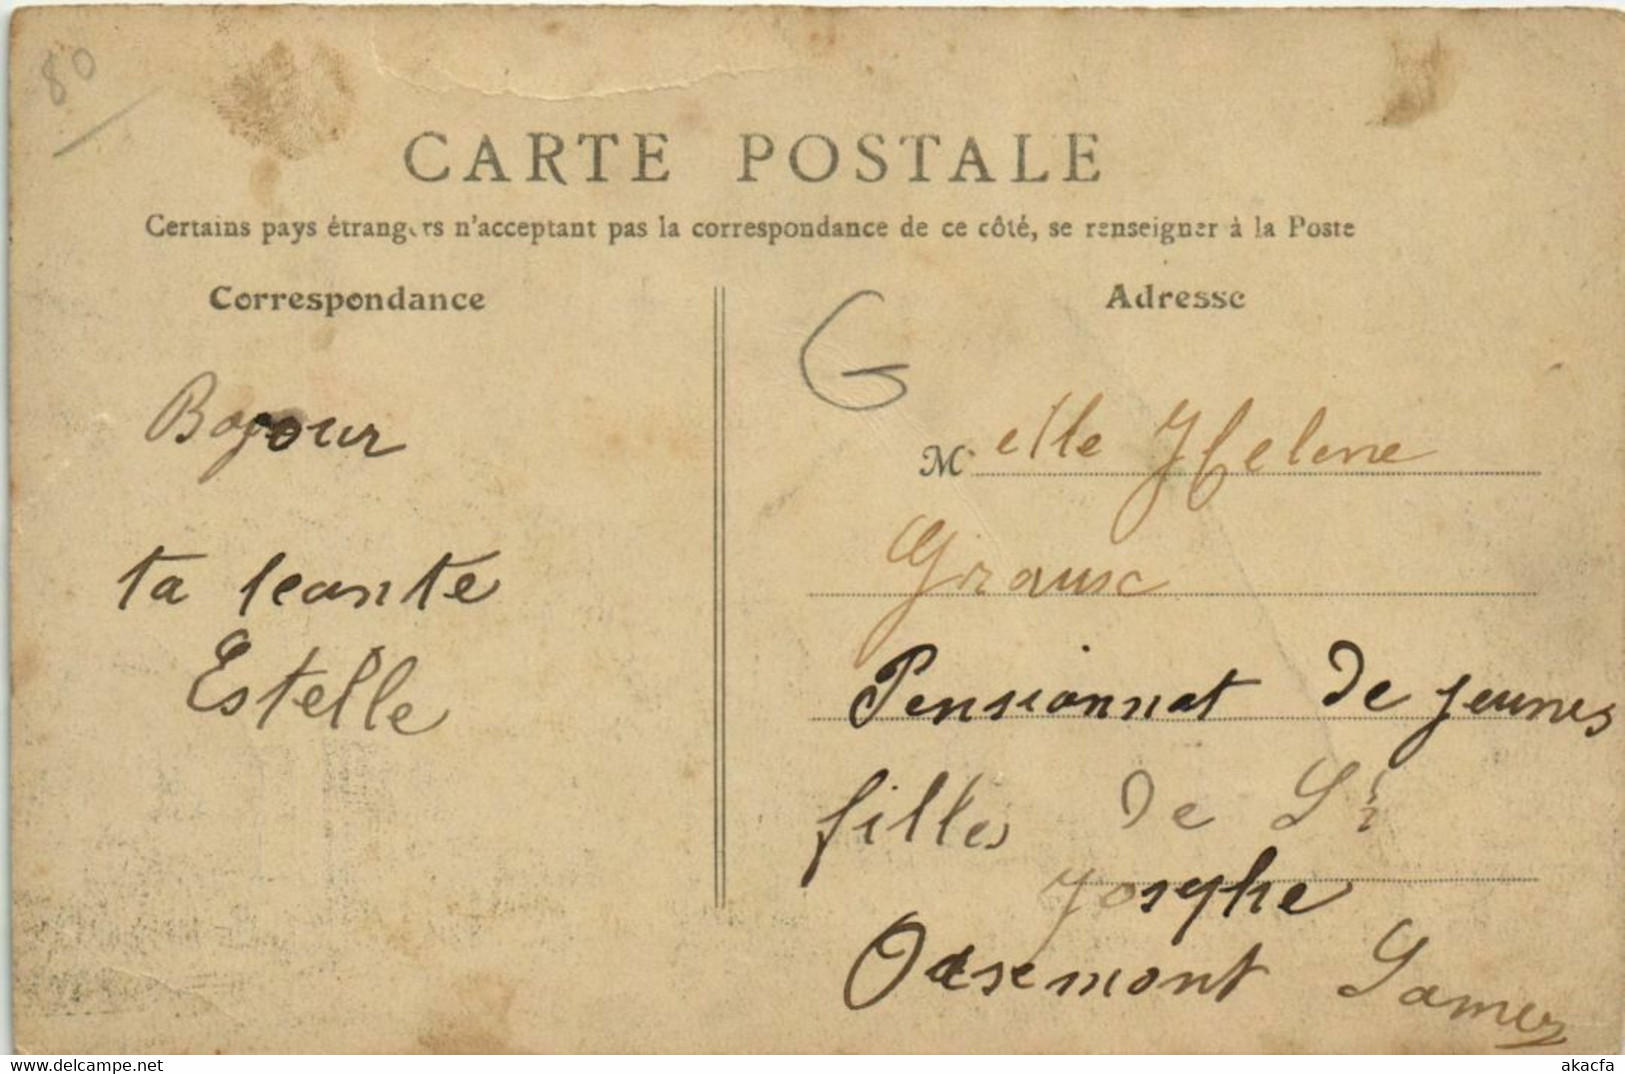 80
CARTE POSTALE
Certains pays étrangers n'acceptent pas la correspondance de ce côté, se renseigner à la Poste
Correspondance
Adresse
G
Bojour
ta
Estelle
M elle Helene
Pensionnat De jeunes
filles De St
Josephe
Oisemont Somme
akacfa